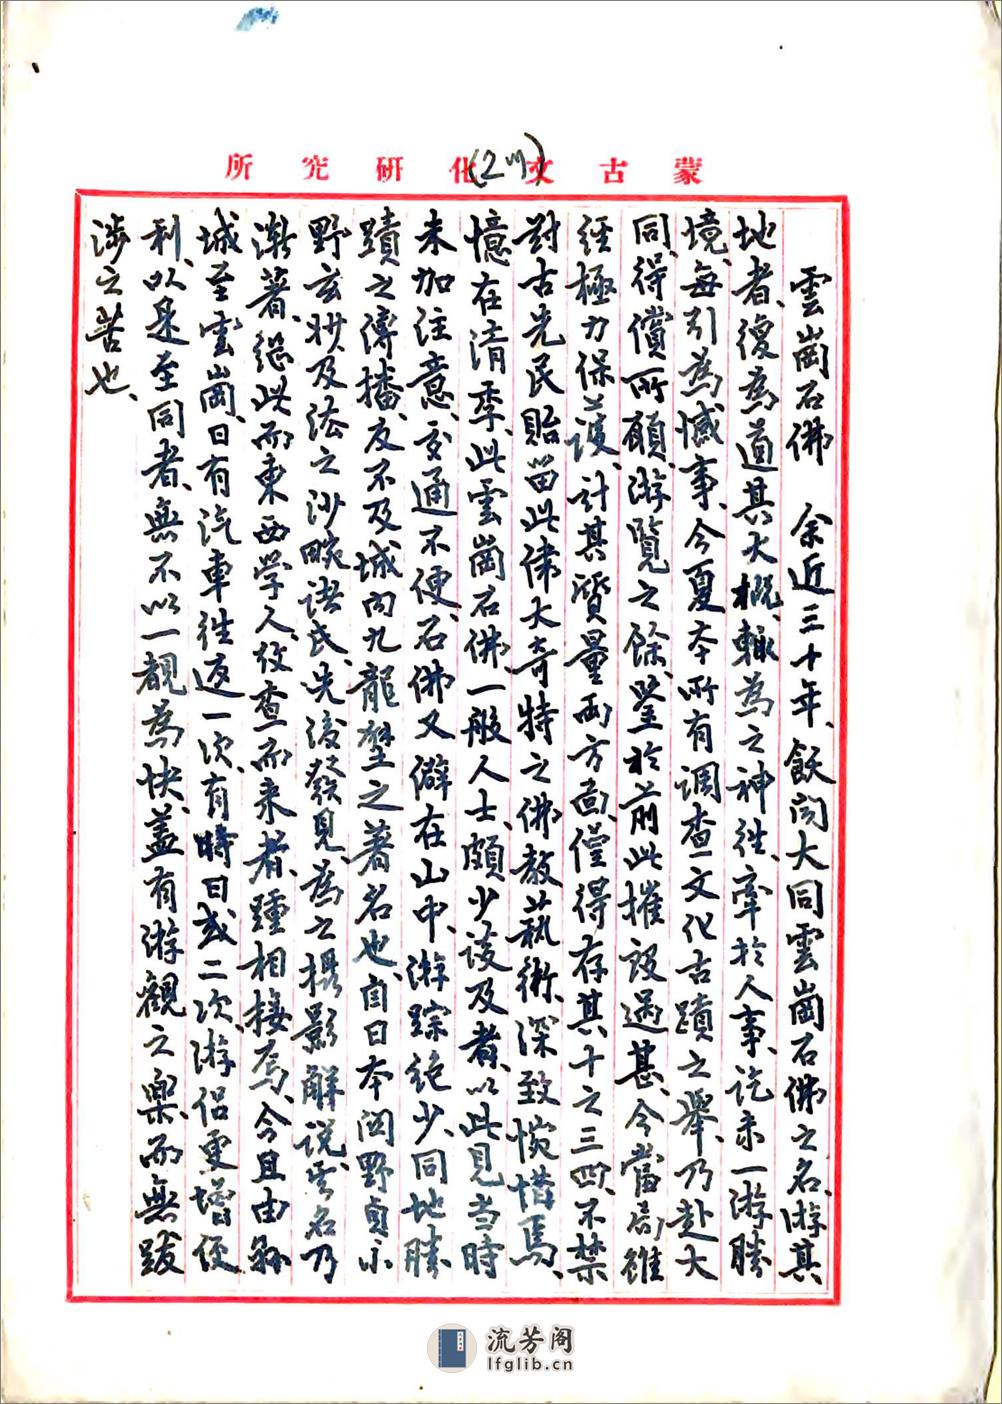 蒙古文化研究所
雲崗石佛　余近三十年、飫聞大同雲崗石佛之名、游其
地者、復為道其大概、輒為之神往、牽於人事、迄未一游勝
境、每引為憾事、今夏本所有調查文化古蹟之舉、乃赴大
同、得償所願、游覽之餘、鑒於前此摧毀過甚、今當局雖
經極力保護、計其質量兩方面、僅得存其十之三四、不禁
對古先民貽留此偉大奇特之佛教藝術、深致惋惜焉、
憶在清季、此雲崗石佛一般人士、頗少談及者、以此見当時
未加注意、交通不便、石佛又僻在山中、游踪絶少、同地勝
蹟之傳播、反不及城內九龍壁之著名也、自日本関野貞小
野玄妙、及法之沙畹諸氏、先後發見、為之撮影解說、雲名乃
漸著、繼此而東西學人、攷查而來者、踵相接焉、今且由
城至雲崗、日有汽車往返一次、有時日或二次、游侶更增便
利、以是至同者、無不以一覩為快、蓋有游觀之樂、而無跋
涉之苦也、
流芳阁
lfglib.cn